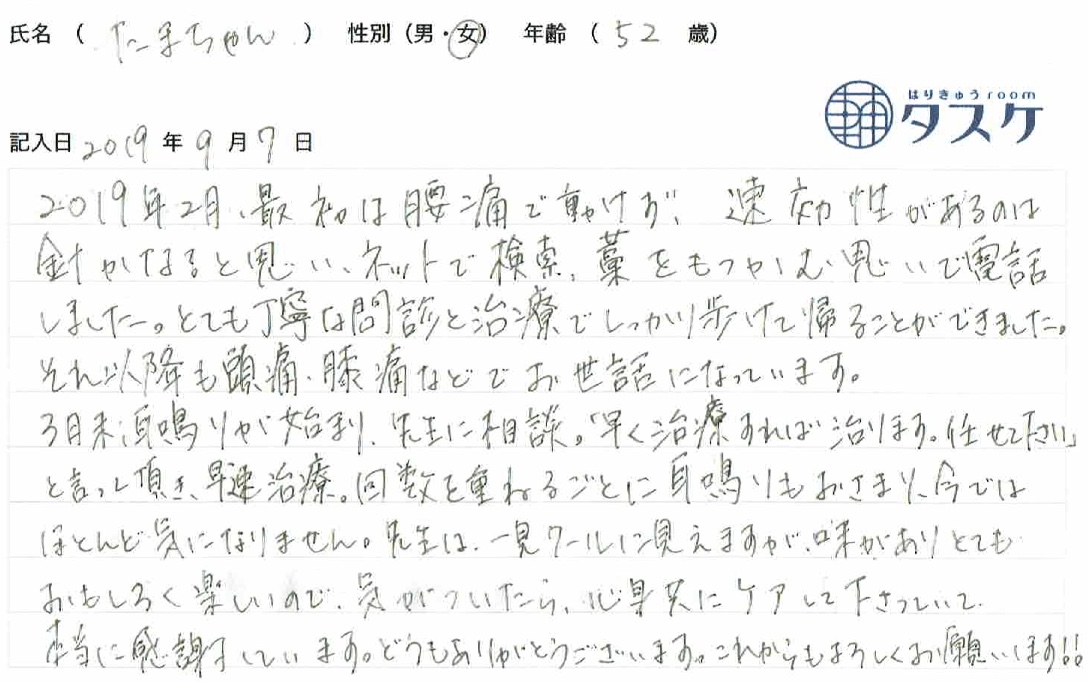 氏名 ( たまちゃん ) 性別 (男・女) 年齢 ( 52 歳)
はりきゅうroom
タスケ
記入日 2019 年 9 月 7 日
2019年2月、最初は腰痛で動けず、速効性があるのは
針かなぁと思い、ネットで検索、藁をもつかむ思いで電話
しました。とても丁寧な問診と治療でしっかり歩けて帰ることができました。
それ以降も頭痛、膝痛などでお世話になっています。
3月末耳鳴りが始まり、先生に相談。「早く治療すれば治ります。任せて下さい」
と言って頂き、早速治療。回数を重ねるごとに耳鳴りもおさまり、今では
ほとんど気になりません。先生は、一見クールに見えますが、味がありとても
おもしろく楽しいので、気がついたら、心身共にケアして下さっていて
本当に感謝しています。どうもありがとうございます。これからもよろしくお願いします!!